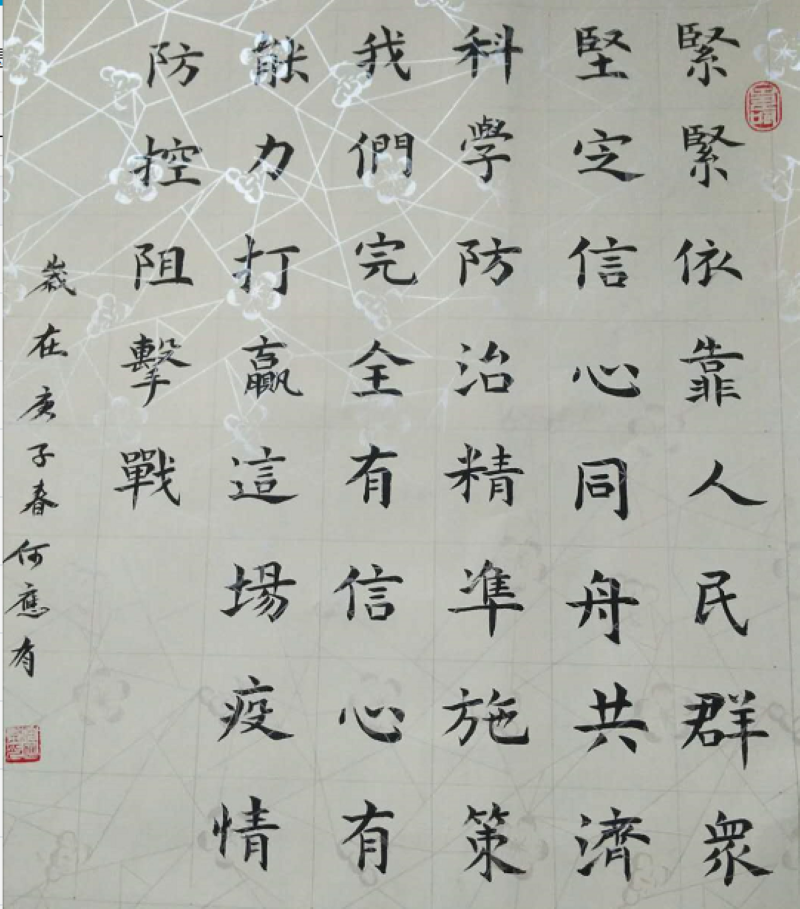 緊緊依靠人民群眾
堅定信心同舟共濟
科學防治精準施策
我們完全有信心有
能力打贏這場疫情
防控阻擊戰
歲在庚子春何應有